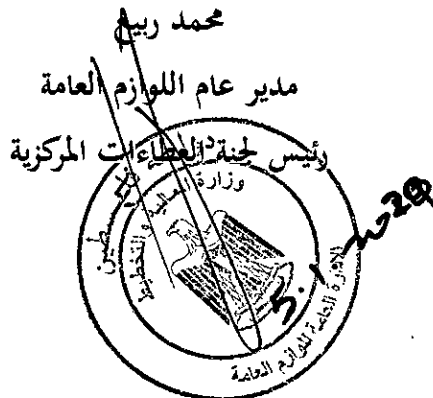 محمد ربيع
مدير عام اللوازم العامة
رئيس لجنة العطاءات المركزية
فلسطين
وزارة المالية والتخطيط
الإدارة العامة للوازم العامة